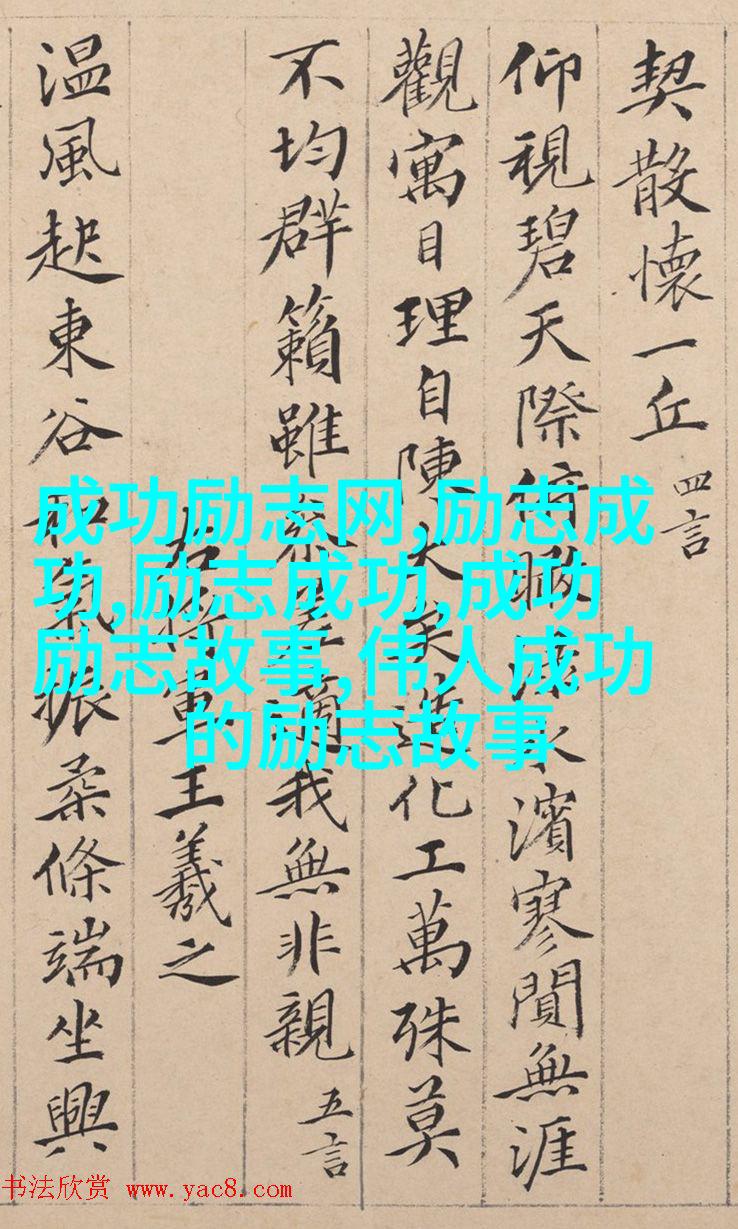 契散懷一丘 四言
仰視碧天際俯瞰淥水濱寥閴無涯
觀寓目理自陳大矣造化工萬殊莫
不均群籟雖參差適我無非親 五言
右將軍王羲之
温風起東谷和氣振柔條端坐興
成功励志网,励志成
功,励志成功,成功
励志故事,伟人成功
的励志故事
书法欣赏 www.yac8.com